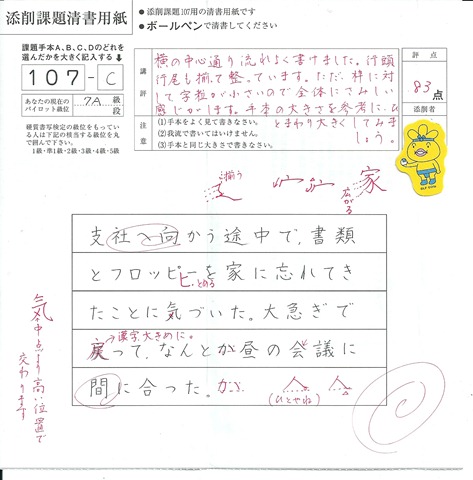 添削課題清書用紙
●添削課題107用の清書用紙です
●ボールペンで清書してください
課題手本A、B、C、Dのどれを
選んだかを大きく記入する
107-C
あなたの現在の
パイロット級位
7A 級
段
硬質書写検定の級位をもってい
る人は下記の相当する級位を丸
で囲んで下さい。
1級・準1級・2級・3級・4級・5級
講評
横の中心通り流れよく書けました。行頭
行尾も揃って整っています。ただ、枠に対
して字粒が小さいので全体にさみしい
感じがします。手本の大きさを参考に、ひ
とまわり大きくしてみま
しょう。
注意
(1)手本をよく見て書きなさい。
(2)我流で書いてはいけません。
(3)手本と同じ大きさで書きなさい。
評点
83点
添削者
揃う
家
広がる
支社へ向かう途中で、書類
とフロッピーを家に忘れてき
ピ、とめる
たことに気づいた。大急ぎで
漢字、大きめに。
戻って、なんとか昼の会議に
間に合った。
か
(ひとやね)
気
中点より高い位置で
交わります